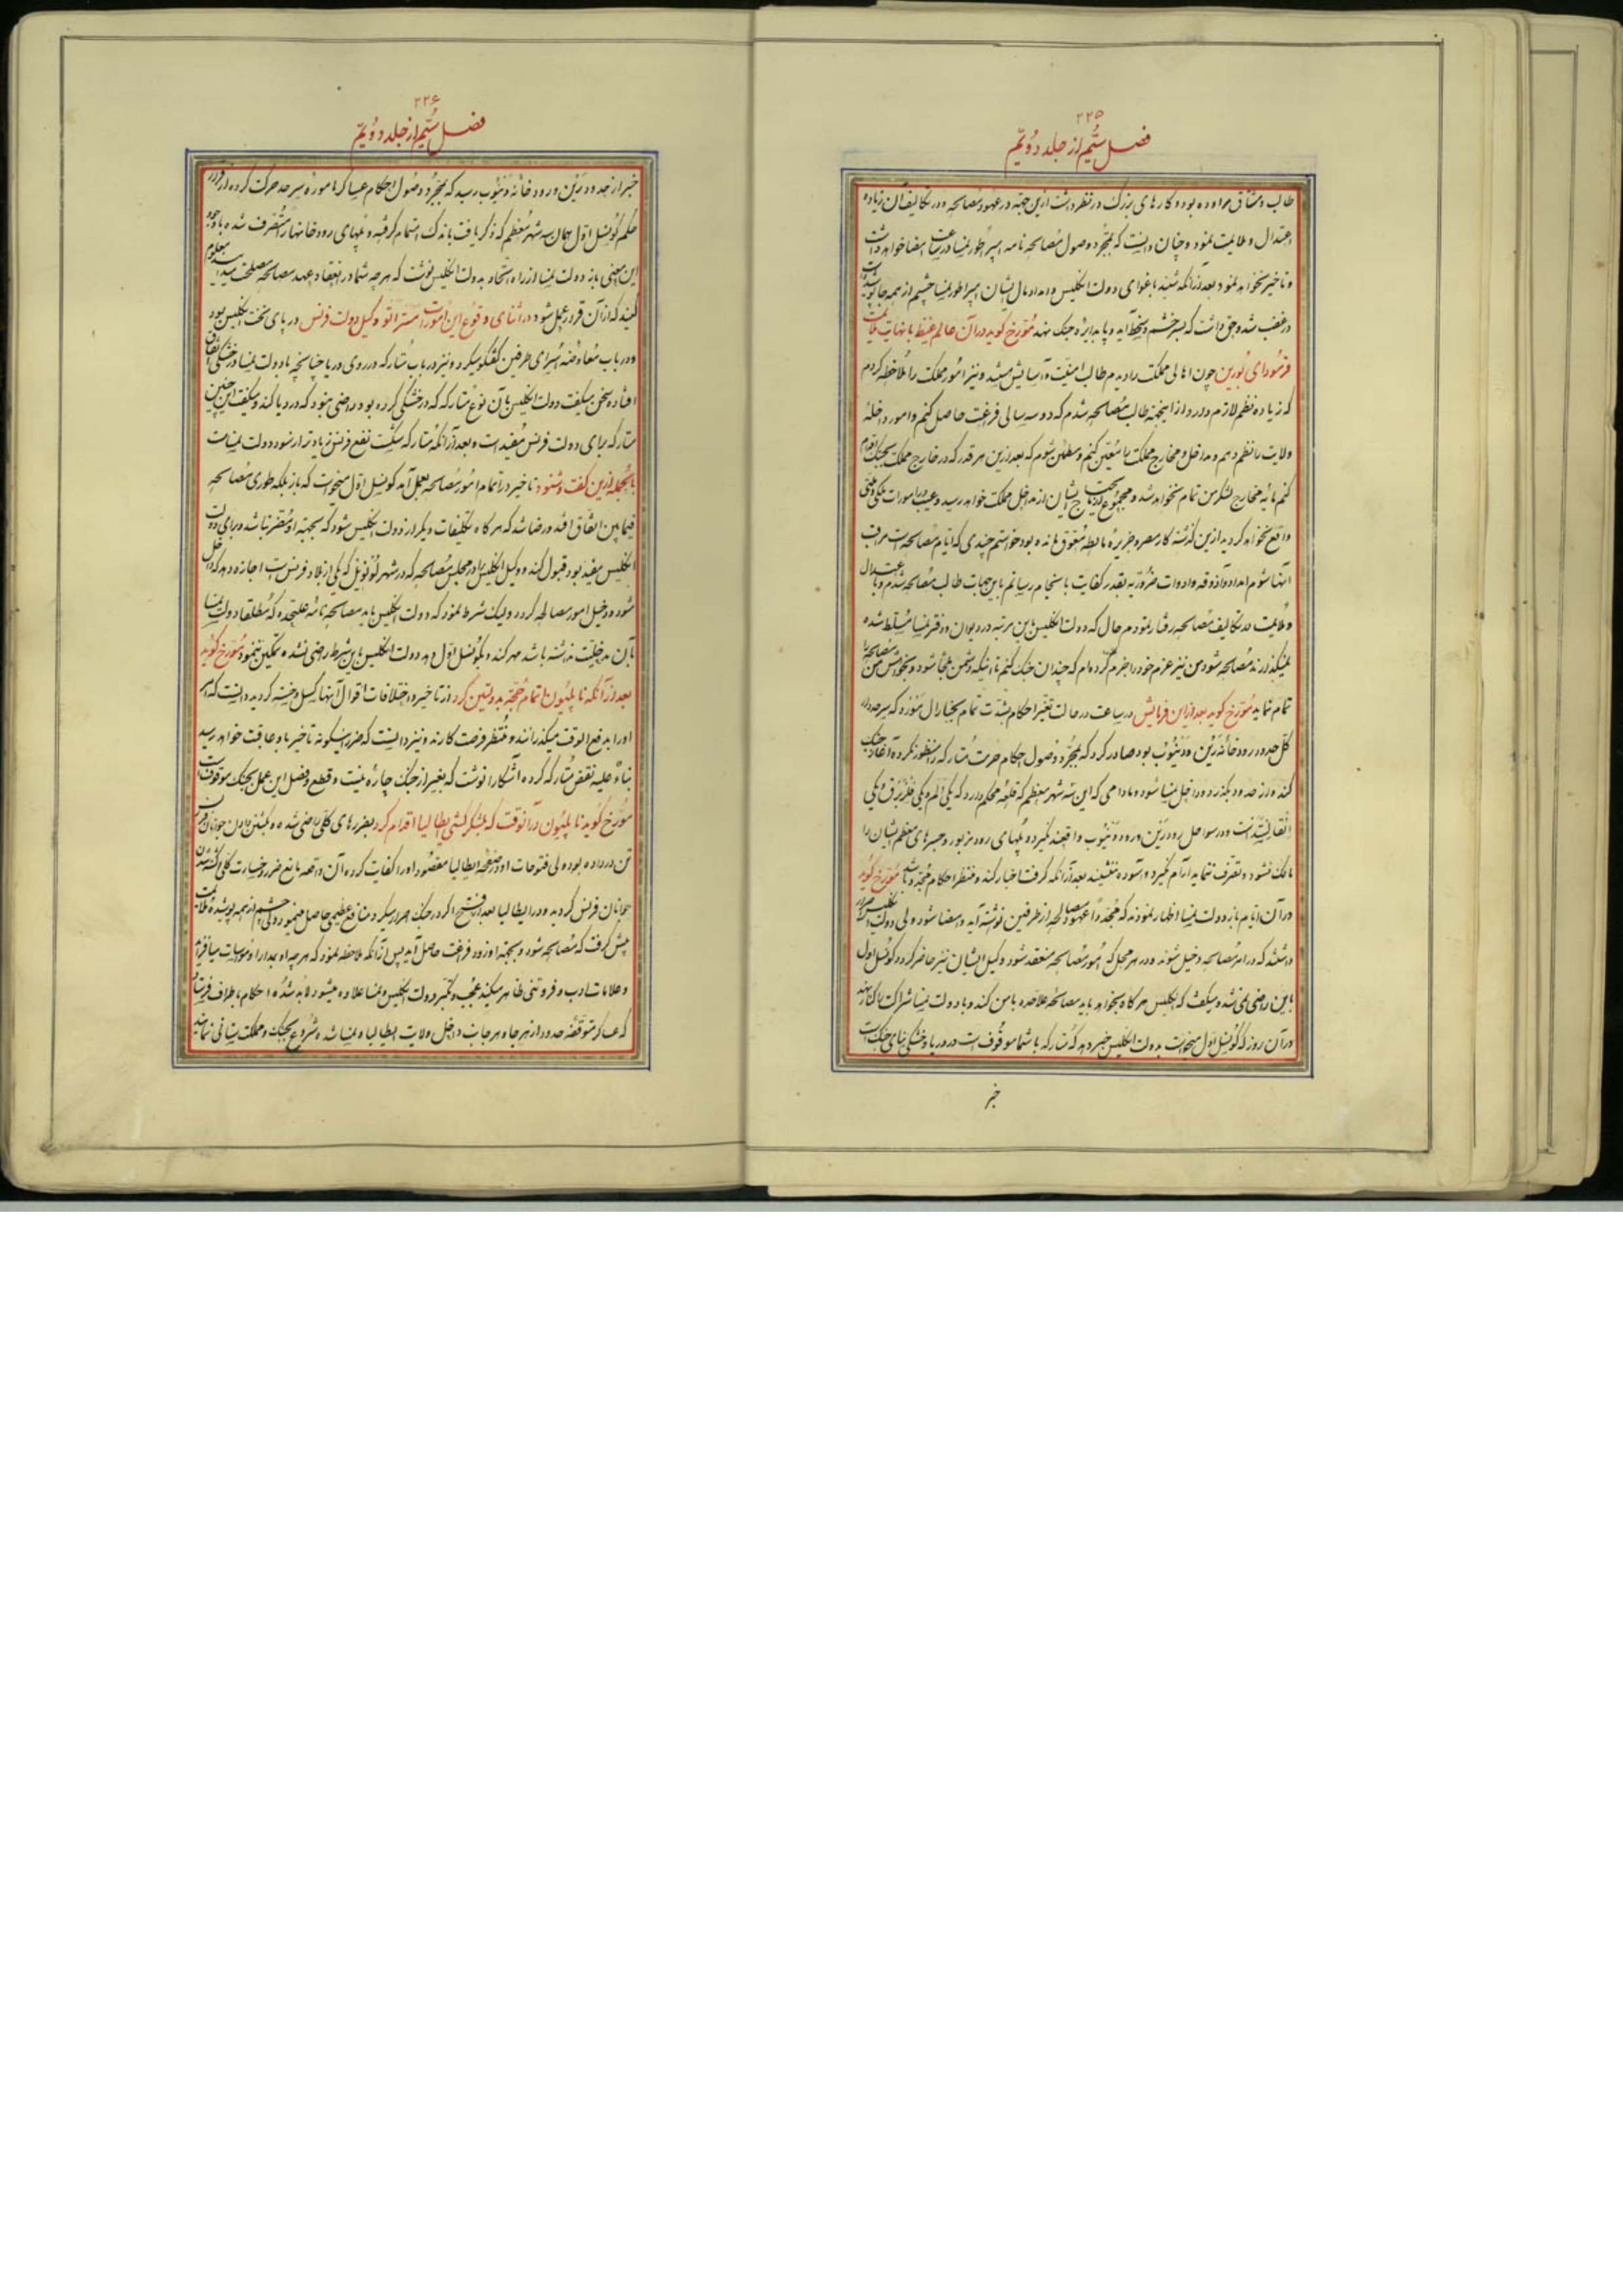 ۲۲۵
فصل سیّم از جلد دویّم
طالب و مشتاق مراوده بود و کارهای بزرگ در نظر داشت ازین جهة در عهود مصالحه و در تکالیف آن زیاده
اعتدال و ملایمت نمود و چنان دانست که بمجرد وصول مصالحه نامه امپراطور نمسا در ساعت امضا خواهد داشت
و تاخیر نخواهد نمود بعد از آنکه شنید باغوای دولت انگلیس و امداد مال ایشان امپراطور نمسا چشم از همه جا پوشیده
در غضب شد و حق داشت که بر خشم و سخط آید و پا بدایره جنک نهد مورخ کوید در آن عالم غیظ با نهایت ملایمت
فرمود ای بورین چون اهالی مملکت را دیدم طالب امنیت و آسایش میشند و نیز امور مملکت را ملاحظه کردم
که زیاده نظم لازم دارد از اینجهة طالب مصالحه شدم که دو سه سالی فراغت حاصل کنم و امور داخله
ولایت را نظم دهم و مداخل و مخارج مملکت را معین کنم و مطمئن شوم که بعد ازین هر قدر که در خارج مملکت بجنک اقدام
کنم مایه مخارج لشکر من تمام نخواهد شد و مجموع مایحتاج ایشان از مداخل مملکت خواهد رسید و عیب در امورات ملکی
واقع نخواهد کردید ازین کذشته کار مصر و جزیره مالطه معوق مانده بود خواستم چندی که ایام مصالحه است مراقب
آنها شوم امداد و آذوقه و ادوات ضروریه بقدر کفایت بانجام رسانم باین جهات طالب مصالحه شدم و با اعتدال
و ملایمت در تکالیف مصالحه رفتار نمودم حال که دولت انگلیس باین مرتبه در دیوان و دفتر نمسا مسلط شده
نمیکذارند مصالحه شود من نیز عزم خود را جزم کرده‌ام که چندان جنک کنم تا اینکه دشمن ملجأ شود و بخواهش من مصالحه را
تمام نماید مورخ کوید بعد از این فرمایش در ساعت در حالت تغیر احکام بشدت تمام بجنارال موره که سرحددار
کل حدود رودخانه رین و دنیوب بود صادر کرد که بمجرد وصول احکام حرمت متارکه را منظور نکرده آغاز جنک
کند و از حدود بکذرد و داخل نمسا شود و مادامی که این سه شهر معظم که قلعه محکم دارد که یکی الم و یکی
در سواحل رود رین و رود دنیوب واقعند نکیرد و پلهای رود مزبور و جسرهای معظم ایشان را
مالک نشود و تصرف ننماید آرام نکیرد و آسوده ننشیند بعد از آنکه کرفت اخبار کند و منتظر احکام مجدد باشد مورخ کوید
در آن ایام باز دولت نمسا اظهار نمودند که مجددا عهود مصالحه از طرفین نوشته آید و امضا شود ولی دولت انگلیس اصرار
داشتند که در امر مصالحه دخیل شوند و در هر محل که امور مصالحه منعقد شود وکیل ایشان نیز حاضر کردد کونسل اول
باین راضی نمی شد و میکفت که انگلیس هر کاه بخواهد باید مصالحه علاحده با من کند و با دولت نمسا شراکت را کنار نهد
در آن روز که کونسل اول میخواست بدولت انگلیس خبر دهد که متارکه با شما موقوف است در دریا و خشکی بنای جنک است
خبر
۲۲۶
فصل سیّم از جلد دویّم
خبر از حدود رین و رودخانه دنیوب رسید که بمجرد وصول احکام عساکر مامورهٔ سرحد حرکت کرده از قرار
حکم کونسل اول همان سه شهر معظم که ذکر یافت باندک اهتمام کرفته و پلهای رودخانها را متصرف شده با وجود
این معنی باز دولت نمسا از راه اتحاد بدولت انگلیس نوشت که هر چه شما در انعقاد عهد مصالحه مصلحت میدانید معلوم
کنید که از آن قرار عمل شود در اثنای وقوع این امورات مستر اتو وکیل دولت فرنس در پای تخت انگلیس بود
و در باب معاوضه اسرای طرفین کفتکو میکرد و نیز در باب متارکه در روی دریا چنانچه با دولت نمسا در خشکی اتفاق
افتاده سخن میکفت دولت انگلیس بآن نوع متارکه که در خشکی کرده بود راضی نبود که در دریا کند و میکفت این چنین
متارکه برای دولت فرنس مفید است و بعد از آنکه متارکه شکست نفع فرنس زیادتر از سود دولت نمساست
بالجمله ازین کفت و شنود تاخیر در اتمام امور مصالحه بعمل آمد کونسل اول میخواست که باز بلکه طوری مصالحه
فیما بین اتفاق افتد و رضا شد که هر کاه تکلیفات دیگر از دولت انگلیس شود که بجهة او مضر نباشد و برای دولت
انگلیس مفید بود قبول کند و وکیل انگلیس را در مجلس مصالحه که در شهر لونویل که یکی از بلاد فرنس است اجازه دهد که داخل
شود و دخیل امور مصالحه کردد ولیک شرط نمود که دولت انگلیس باید مصالحه نامه علیحده که مطلقا دولت نمسا
بآن مدخلیت نداشته باشد مهر کند و بکونسل اول دهد دولت انگلیس باین شرط راضی نشده و تمکین ننمود مورخ کوید
بعد از آنکه ناپلیون اتمام حجة بدولتین کرد از تاخیر و اختلافات اقوال آنها کسل و خسته کردید دانست که امر
او را بدفع الوقت میکذرانند و منتظر فرصت کارند و نیز دانست که ضرر اینکونه تاخیر باو عاقبت خواهد رسید
بناءً علیه نقض متارکه کرده آشکارا نوشت که بغیر از جنک چاره نیست و قطع و فصل این عمل بجنک موقوف است
مورخ کوید ناپلیون در آنوقت که بلشکرکشی ایطالیا اقدام کرد بضررهای کلی راضی شده و بکشتن دادن جوانان فرنس
تن در داده بود ولی فتوحات او در صفحه ایطالیا مقصود او را کفایت کرده آن واقعه مانع ضرر و خسارت کلی و کشته شدن
جوانان فرنس کردید و در ایطالیا بعد از فتح اگر در جنک اصرار میکرد منافع عظیمی حاصل مینمود ولی چشم از همه پوشیده ملایمت
پیش کرفت که مصالحه شود و بجهة او زود فراغت حاصل آید پس از آنکه ملاحظه نمود که هر چه او بمدارا و مواسات میافزاید
و علامات ادب و فروتنی ظاهر میکند عجب و تکبر دولت انگلیس و نمسا علاوه میشود لابد شده احکام باطراف فرستاد
که عساکر متوقفهٔ حدود از هر جا و هر جانب داخل ولایت ایطالیا و نمسا شده شروع بجنک و مملکت ستانی نمایند